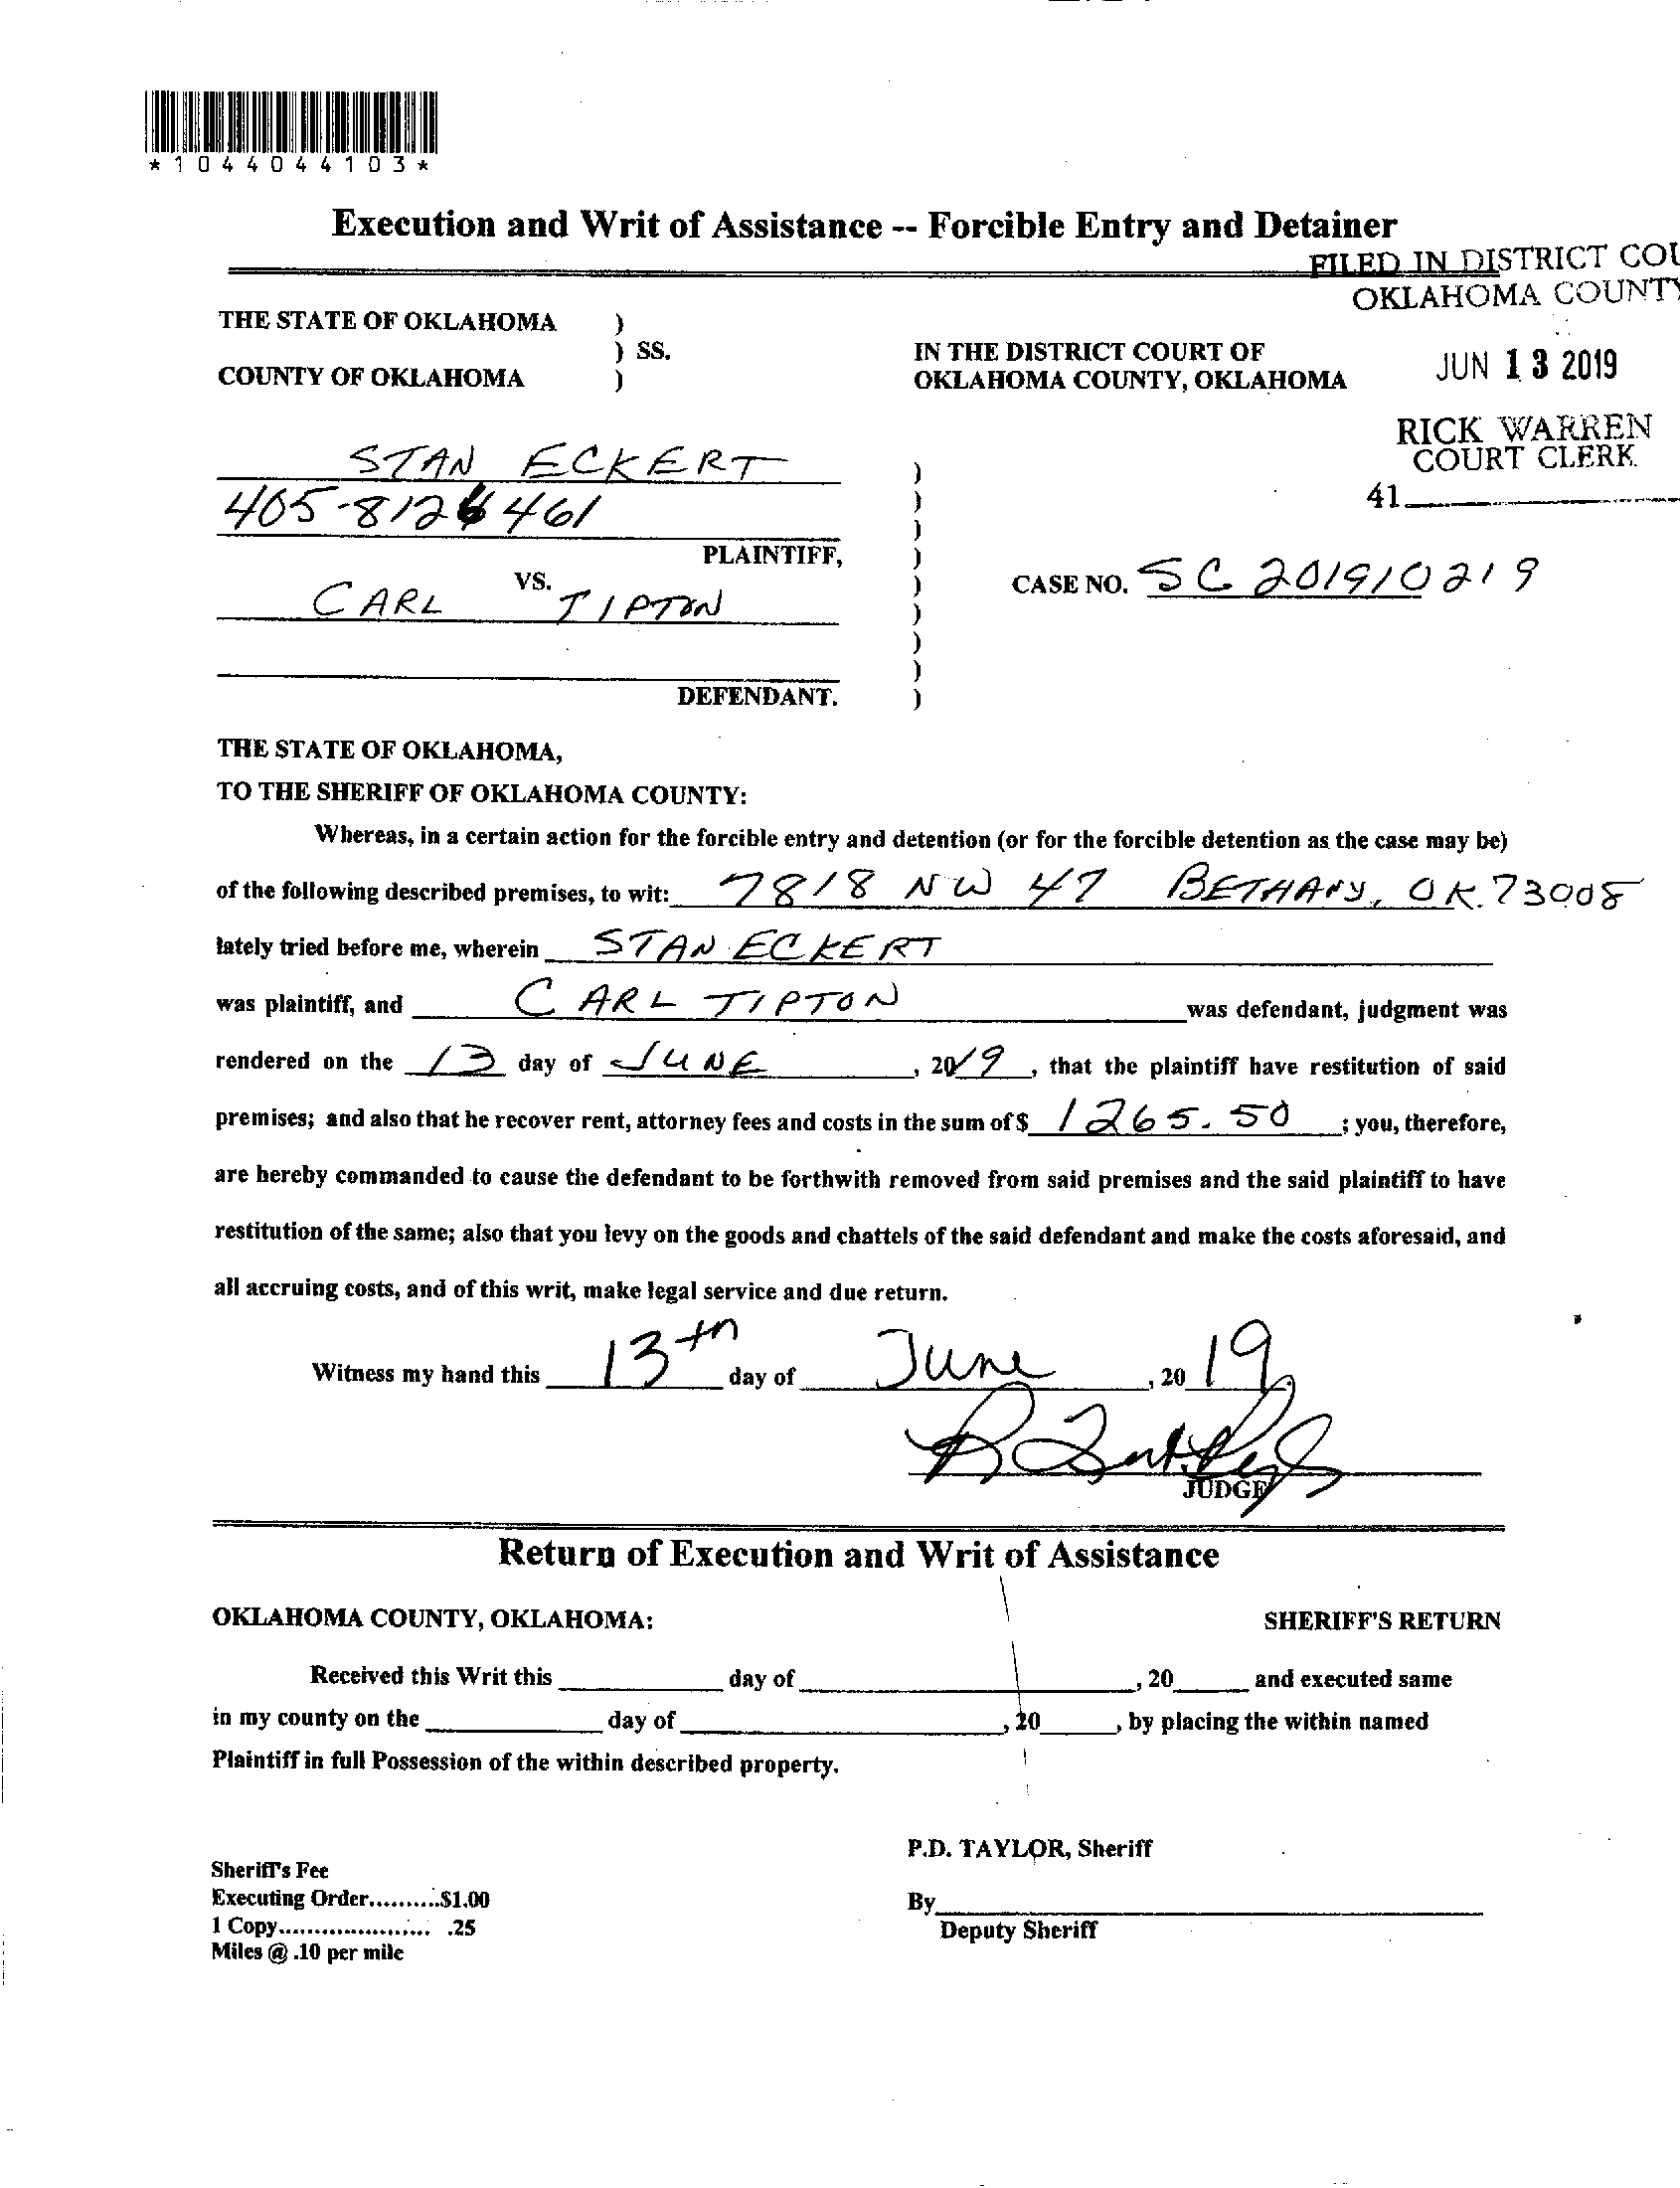 *1044044103*
Execution and Writ of Assistance -- Forcible Entry and Detainer
FILED IN DISTRICT COU
OKLAHOMA COUNTY
THE STATE OF OKLAHOMA )
) SS.
COUNTY OF OKLAHOMA )
IN THE DISTRICT COURT OF
OKLAHOMA COUNTY, OKLAHOMA
JUN 13 2019
RICK WARREN
COURT CLERK
41
STAN ECKERT )
405-812 6461 )
)
PLAINTIFF, )
VS. )
CARL TIPTON )
)
)
DEFENDANT. )
CASE NO. SC 201910219
THE STATE OF OKLAHOMA,
TO THE SHERIFF OF OKLAHOMA COUNTY:
Whereas, in a certain action for the forcible entry and detention (or for the forcible detention as the case may be)
of the following described premises, to wit: 7818 NW 47 BETHANY, OK. 73008
lately tried before me, wherein STAN ECKERT
was plaintiff, and CARL TIPTON was defendant, judgment was
rendered on the 13 day of JUNE, 2019, that the plaintiff have restitution of said
premises; and also that he recover rent, attorney fees and costs in the sum of $ 1265.50 ; you, therefore,
are hereby commanded to cause the defendant to be forthwith removed from said premises and the said plaintiff to have
restitution of the same; also that you levy on the goods and chattels of the said defendant and make the costs aforesaid, and
all accruing costs, and of this writ, make legal service and due return.
Witness my hand this 13th day of June, 2019
JUDGE
Return of Execution and Writ of Assistance
OKLAHOMA COUNTY, OKLAHOMA: SHERIFF'S RETURN
Received this Writ this ________ day of ________________, 20____ and executed same
in my county on the ________ day of ________________, 20____, by placing the within named
Plaintiff in full Possession of the within described property.
P.D. TAYLOR, Sheriff
Sheriff's Fee
Executing Order..........$1.00
1 Copy..................... .25
Miles @ .10 per mile
By________________
Deputy Sheriff